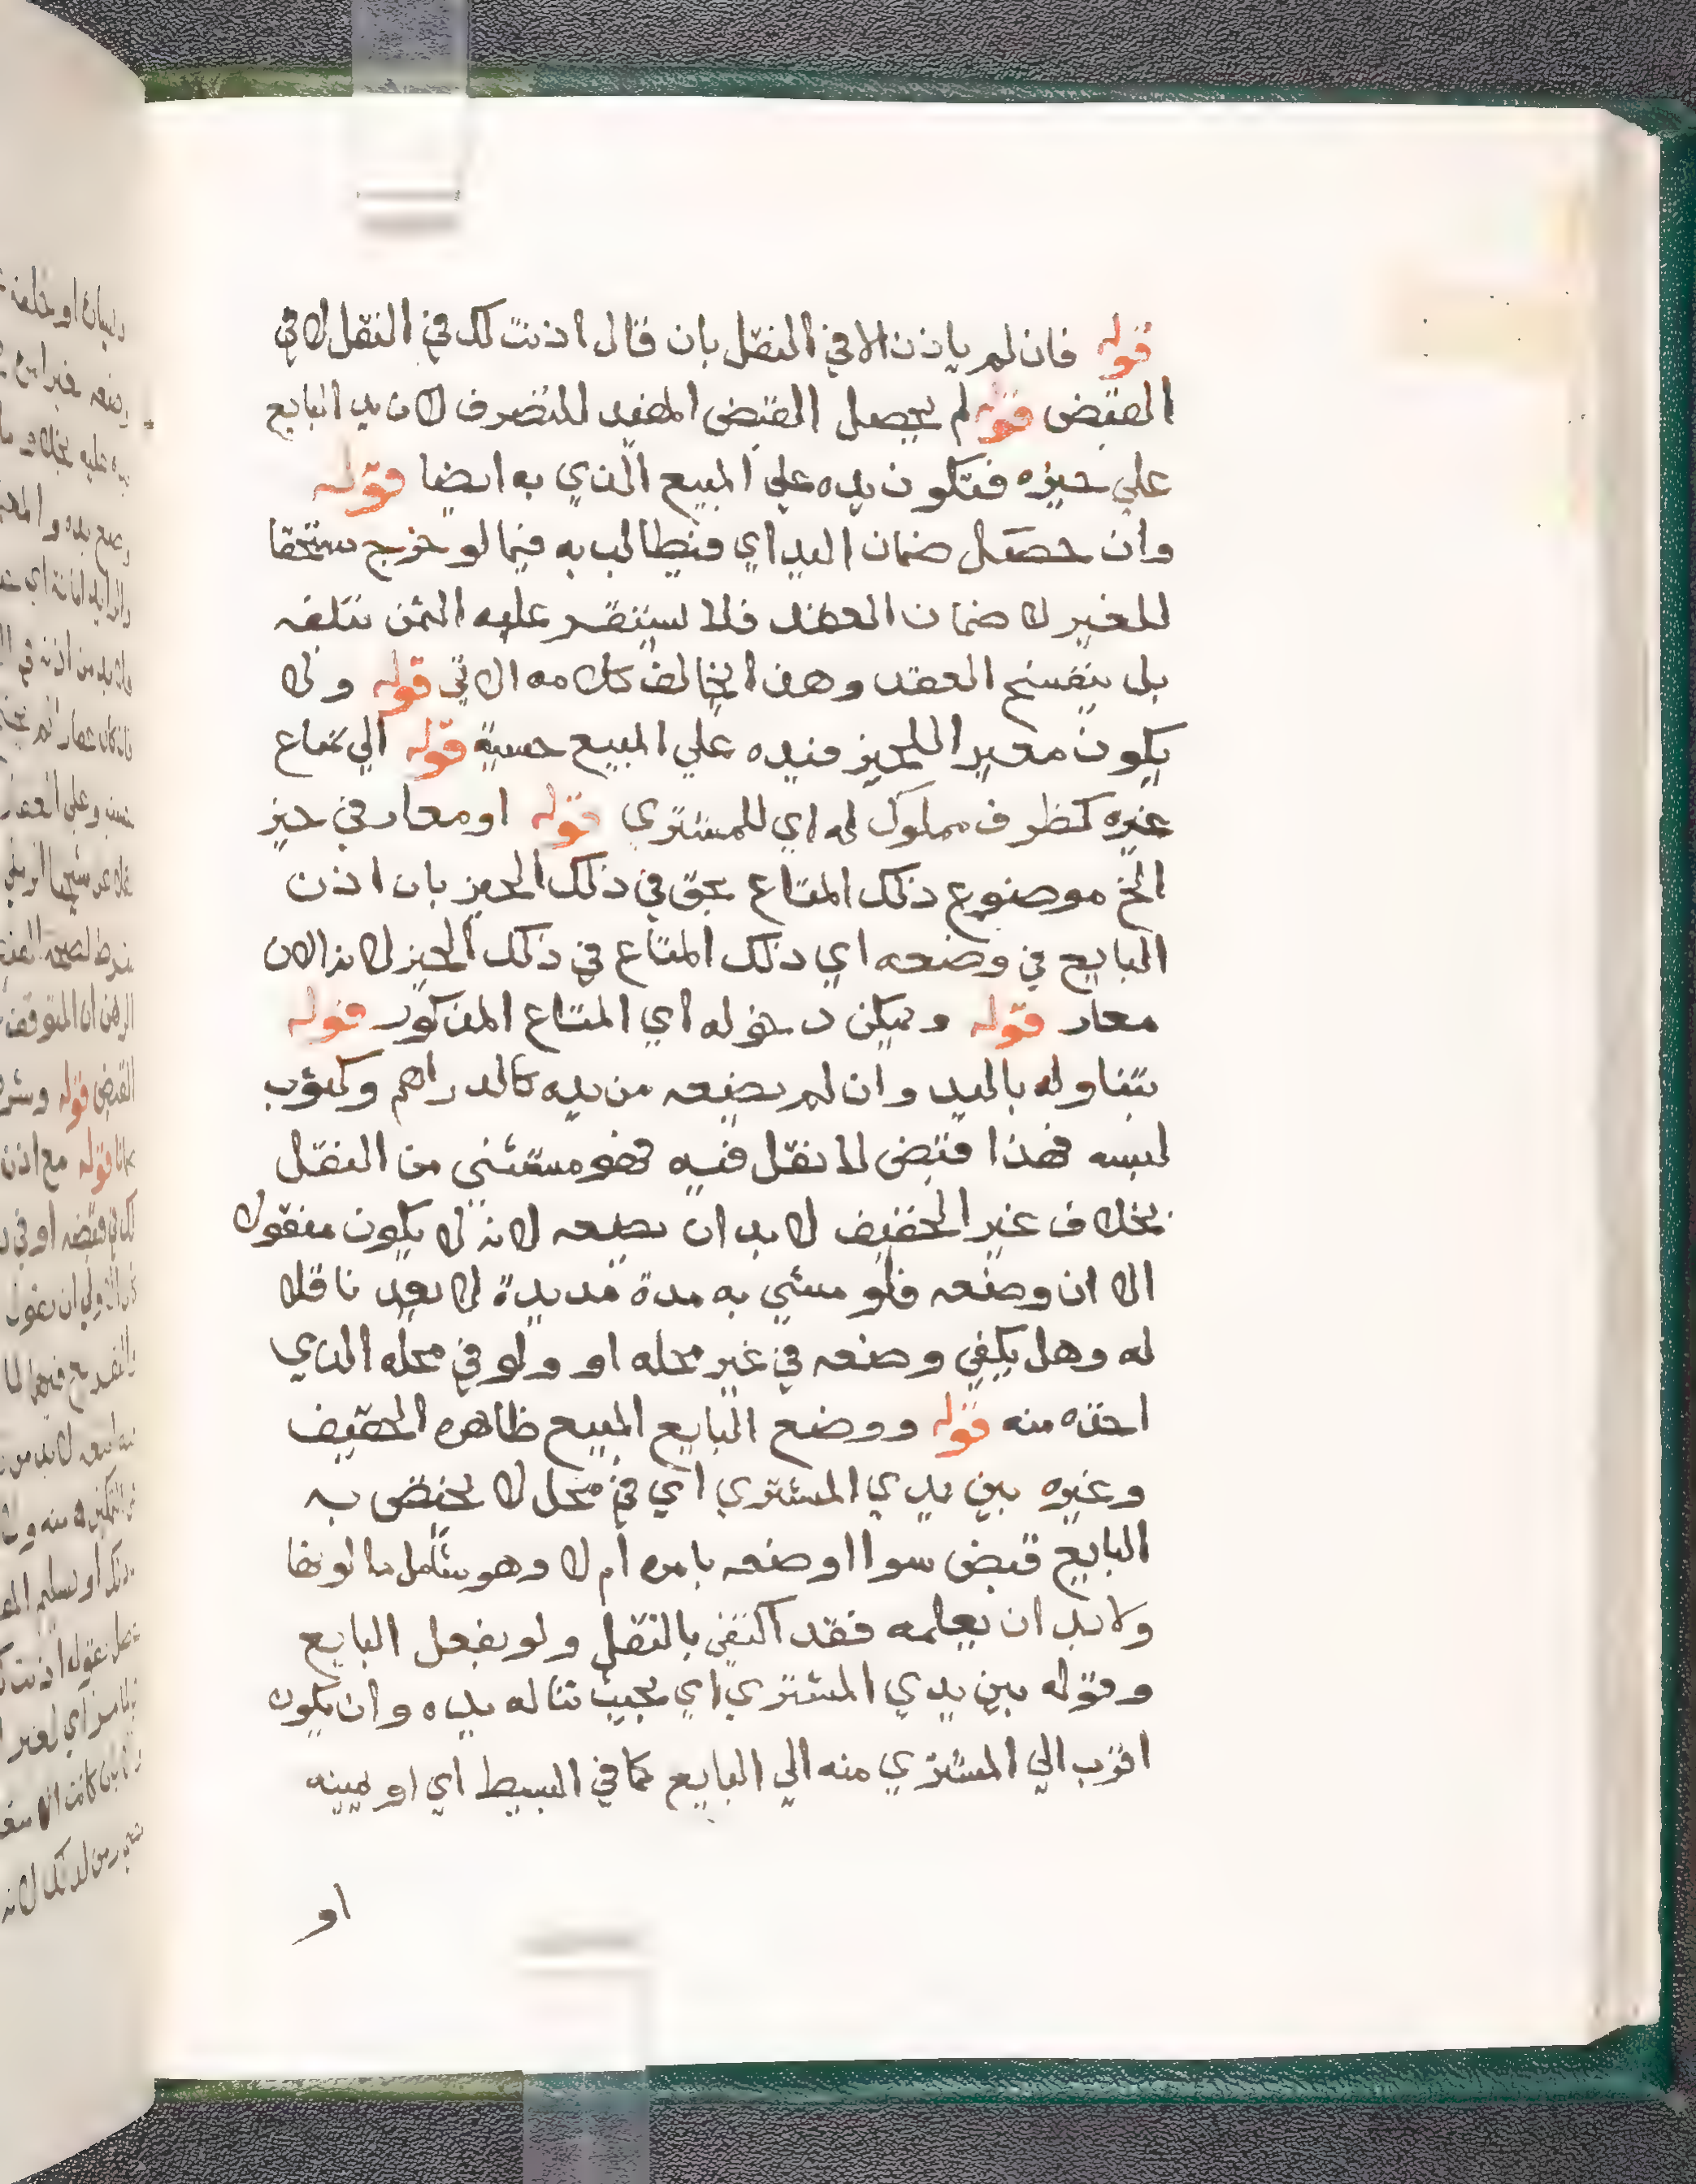 قوله فان لم ياذن الا في النقل بان قال اذنت لك في النقل لا في
القبض قوله لم يحصل القبض المفيد للتصرف لان يد البايع
علي حيزه فتكون يده علي المبيع الذي به ايضا قوله
وان حصل ضمان اليد اي فيطالب به فيما لو خرج مستحقا
للغير لا ضمان العقد فلا يستقر عليه الثمن بتلفه
بل ينفسخ العقد وهذا يخالف كلامه الاتي قوله ولا
يكون معيرا للحيز فيده علي المبيع حسية قوله الي متاع
غيره كظرف مملوك له اي للمشتري قوله او معار في حيز
الخ موضوع ذلك المتاع بحق في ذلك الحيز بان اذن
البايع في وضعه اي ذلك المتاع في ذلك الحيز لانه الان
معار قوله ويمكن دخوله اي المتاع المذكور قوله
يتناوله باليد وان لم يضعه من يده كالدراهم وكثوب
لبسه فهذا قبض لا نقل فيه فهو مستثني من النقل
بخلاف غير الخفيف لا بد ان يضعه لانه لا يكون منقولا
الا ان وضعه فلو مشي به مدة مديدة لا يعد ناقلا
له وهل يكفي وضعه في غير محله او ولو في محله الذي
اخذه منه قوله ووضع البايع المبيع ظاهره الخفيف
وغيره بين يدي المشتري اي في محل لا يختص به
البايع قبض سوا اوضعه بامره أم لا وهو يتأمل ما لونها
ولا بد ان يعلمه فقد اكتفي بالنقل ولو بفعل البايع
وقوله بين يدي المشتري اي بحيث تناله يده وان يكون
اقرب الي المشتري منه الي البايع كما في البسيط اي او يمينه
او